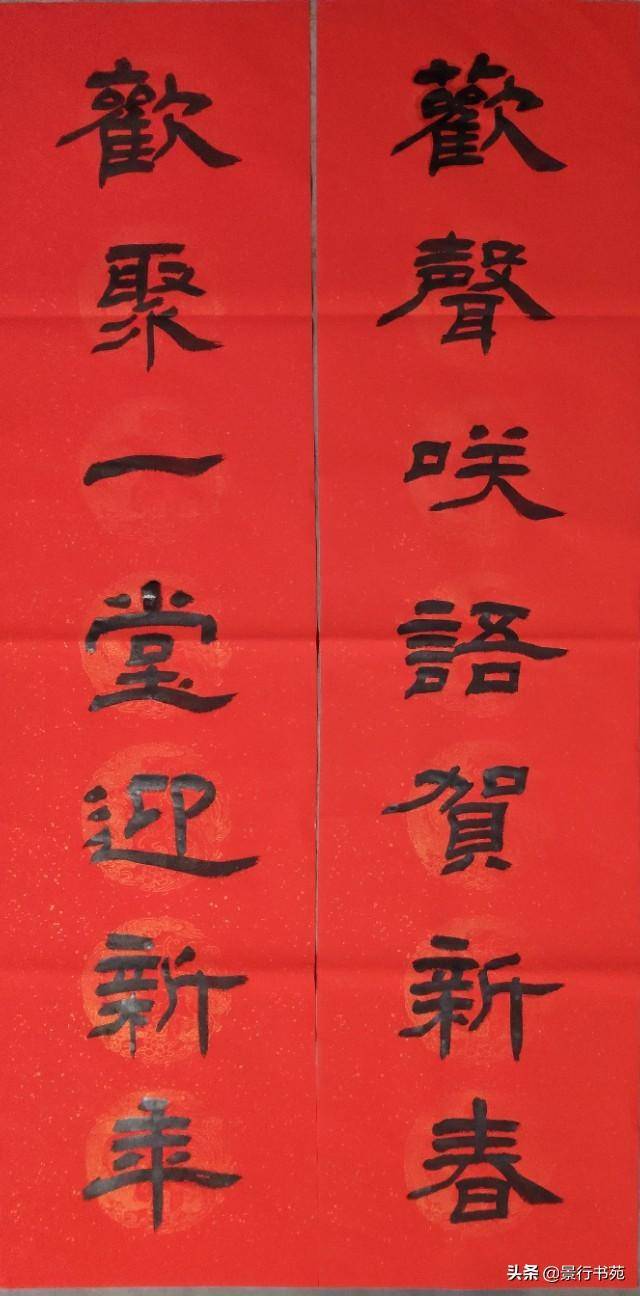 歡聲咲語賀新春
歡聚一堂迎新年
头条 @景行书苑